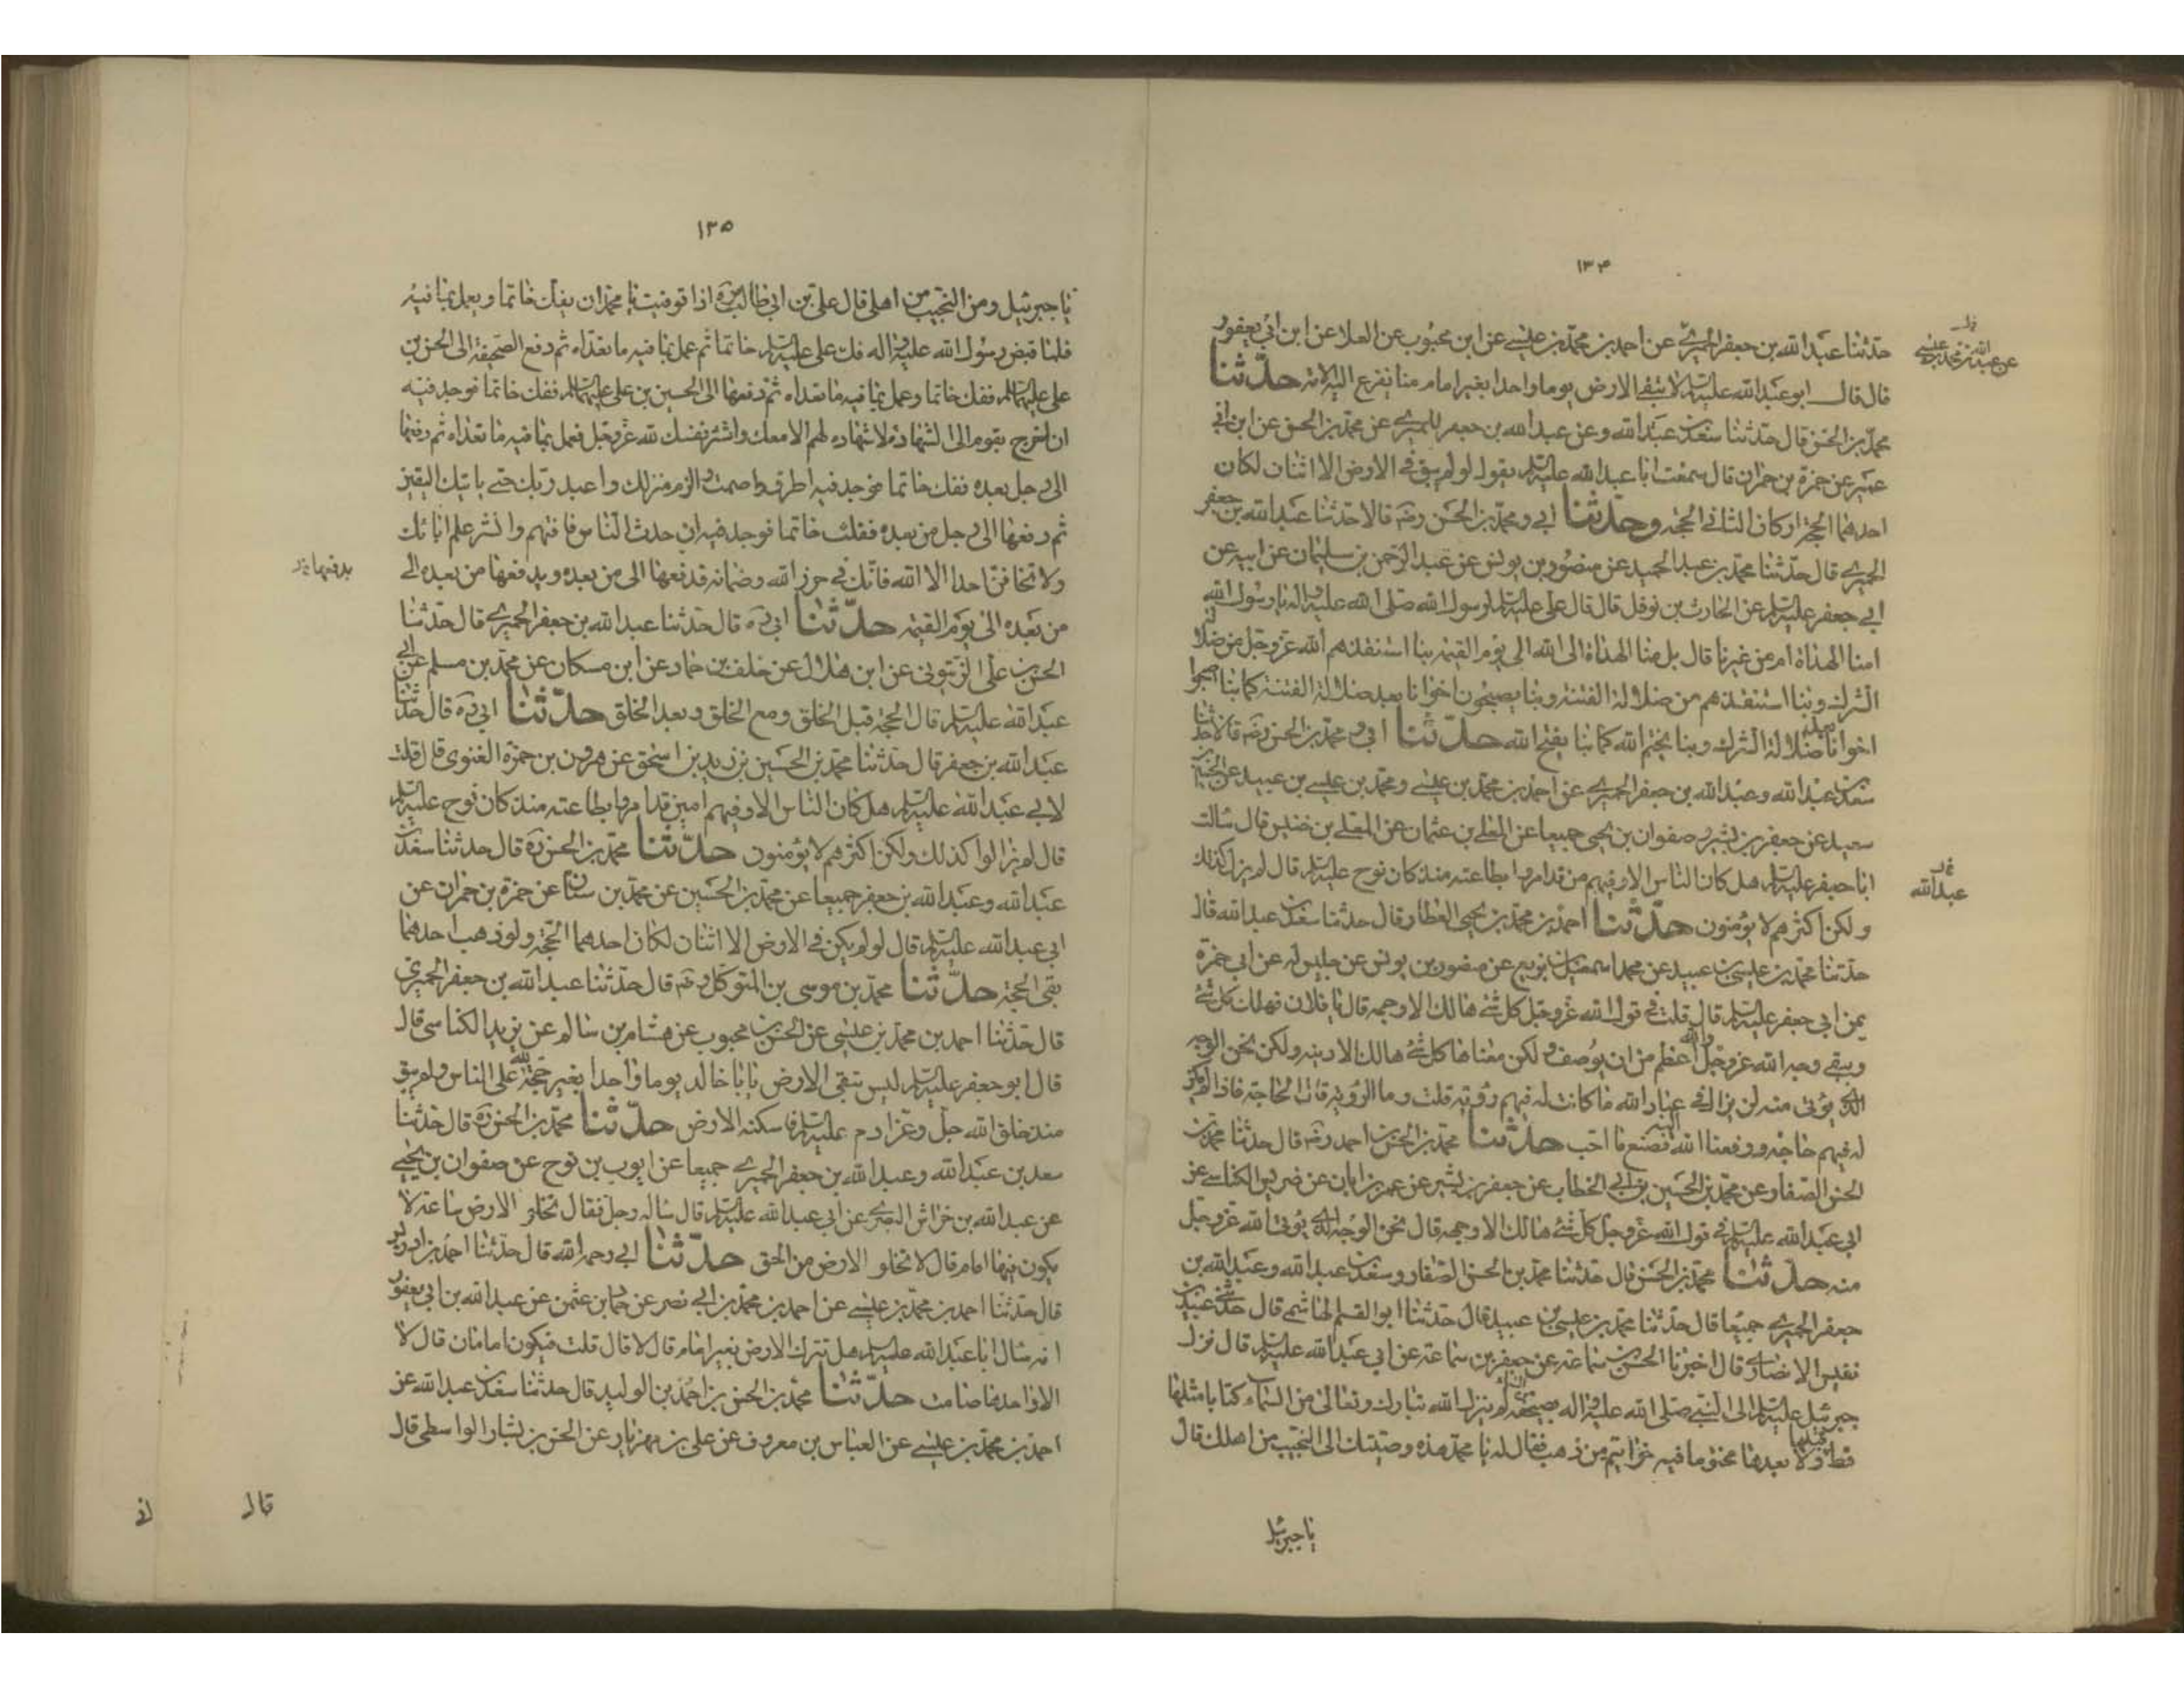 ١٣٤
حدثنا عبد الله بن جعفر الحميري عن احمد بن محمد بن عيسى عن ابن محبوب عن العلا عن ابن ابي يعفور
قال قال ابو عبد الله عليه السلم لا تبقى الارض يوما واحدا بغير امام منا تفزع اليه الامة حدثنا
محمد بن الحسن قال حدثنا سعد بن عبد الله وعن عبد الله بن جعفر الحميري عن محمد بن الحسن عن ابن ابي
عمير عن حمزة بن حمران قال سمعت ابا عبد الله عليه السلم يقول لو لم يبق في الارض الا اثنان لكان
احدهما الحجة او كان الثاني الحجة وحدثنا ابي ومحمد بن الحسن رضه قالا حدثنا عبد الله بن جعفر
الحميري قال حدثنا محمد بن عبد الحميد عن منصور بن يونس عن عبد الرحمن بن سليمان عن ابيه عن
ابي جعفر عليه السلم عن الحارث بن نوفل قال قال علي عليه السلم لرسول الله صلى الله عليه واله يا رسول الله
امنا الهداة ام من غيرنا قال بل منا الهداة الى الله الى يوم القيمة بنا استنقذهم الله عز وجل من ضلالة
الشرك وبنا استنقذهم من ضلالة الفتنة وبنا يصبحون اخوانا بعد ضلالة الفتنة كما بنا اصبحوا
اخوانا بعد ضلالة الشرك وبنا يختم الله كما بنا يفتح الله حدثنا ابي ومحمد بن الحسن رضه قالا حدثنا
سعد بن عبد الله وعبد الله بن جعفر الحميري عن احمد بن محمد بن عيسى ومحمد بن عيسى بن عبيد عن الحسين بن
سعيد عن جعفر بن بشير وصفوان بن يحيى جميعا عن المعلى بن عثمان عن المعلى بن خنيس قال سالت
ابا جعفر عليه السلم هل كان الناس الا وفيهم من قد امروا بطاعته منذ كان نوح عليه السلم قال لم يزل كذلك
ولكن اكثرهم لا يؤمنون حدثنا احمد بن محمد بن يحيى العطار قال حدثنا سعد بن عبد الله قال
حدثنا محمد بن عيسى بن عبيد عن محمد اسمعيل بن بزيع عن منصور بن يونس عن جليس له عن ابي حمزة
عن ابي جعفر عليه السلم قال قلت في قول الله عز وجل كل شئ هالك الا وجهه قال يا فلان فيهلك كل شئ
ويبقى وجه الله عز وجل والله اعظم من ان يوصف ولكن معناها كل شئ هالك الا دينه ولكن نحن الوجه
الذي يؤتى منه لن نزال في عباد الله ما كانت له فيهم روية قلت وما الروية قال الحاجة فاذا لم يكن
له فيهم حاجة ورفعنا الله اليه فصنع ما احب حدثنا محمد بن الحسن بن احمد رضه قال حدثنا محمد بن
الحسن الصفار عن محمد بن الحسين بن ابي الخطاب عن جعفر بن بشير عن عمر بن ابان عن ضريس الكناسي عن
ابي عبد الله عليه السلم في قول الله عز وجل كل شئ هالك الا وجهه قال نحن الوجه الذي يؤتى الله عز وجل
منه حدثنا محمد بن الحسن قال حدثنا محمد بن الحسن الصفار وسعد بن عبد الله وعبد الله بن
جعفر الحميري جميعا قال حدثنا محمد بن عيسى بن عبيد قال حدثنا ابو القسم الهاشمي قال حدثني عبيد بن
نفيس الانصاري قال اخبرنا الحسن بن سماعة عن جعفر بن سماعة عن ابي عبد الله عليه السلم قال نزل
جبرئيل عليه السلم الى النبي صلى الله عليه واله بصحيفة لم ينزل الله تبارك وتعالى من السماء كتابا مثلها
قط قبلها ولا بعدها مختوما فيه خواتيم من ذهب فقال له يا محمد هذه وصيتك الى النجيب من اهلك قال
يا جبرئيل
عن عبد الله بن محمد بن عيسى
عبد الله
١٣٥
يا جبرئيل ومن النجيب من اهلي قال علي بن ابي طالب مره اذا توفيت يا محمد ان يفك خاتما ويعمل بما فيه
فلما قبض رسول الله عليه واله فك علي عليه السلم خاتما ثم عمل بما فيه ما تعداه ثم دفع الصحيفة الى الحسن بن
علي عليهما السلم ففك خاتما وعمل بما فيه ما تعداه ثم دفعها الى الحسين بن علي عليهما السلم ففك خاتما فوجد فيه
ان اخرج بقوم الى الشهادة لا شهادة لهم الا معك واشتر نفسك لله عز وجل فعمل بما فيه ما تعداه ثم دفعها
الى رجل بعده ففك خاتما فوجد فيه اطرق واصمت والزم منزلك واعبد ربك حتى ياتيك اليقين
ثم دفعها الى رجل من بعده ففك خاتما فوجد فيه ان حدث الناس وافتهم وانشر علم ابائك
ولا تخافن احدا الا الله فانك في حرز الله وضمانه فدفعها الى من بعده ويدفعها من بعده الى
من بعده الى يوم القيمة حدثنا ابي ره قال حدثنا عبد الله بن جعفر الحميري قال حدثنا
الحسن بن علي الزيتوني عن ابن هلال عن خلف بن حماد عن ابن مسكان عن محمد بن مسلم عن ابي
عبد الله عليه السلم قال الحجة قبل الخلق ومع الخلق وبعد الخلق حدثنا ابي ره قال حدثنا
عبد الله بن جعفر قال حدثنا محمد بن الحسين بن زيد بن اسحق عن هرون بن حمزة الغنوي قال قلت
لابي عبد الله عليه السلم هل كان الناس الا وفيهم امين قد امروا بطاعته منذ كان نوح عليه السلم
قال لم يزالوا كذلك ولكن اكثرهم لا يؤمنون حدثنا محمد بن الحسن ره قال حدثنا سعد بن
عبد الله وعبد الله بن جعفر جميعا عن محمد بن الحسين عن محمد بن سنان عن حمزة بن حمران عن
ابي عبد الله عليه السلم قال لو لم يكن في الارض الا اثنان لكان احدهما الحجة ولو ذهب احدهما
بقي الحجة حدثنا محمد بن موسى بن المتوكل رضه قال حدثنا عبد الله بن جعفر الحميري
قال حدثنا احمد بن محمد بن عيسى عن الحسن بن محبوب عن هشام بن سالم عن يزيد الكناسي قال
قال ابو جعفر عليه السلم ليس تبقى الارض يا با خالد يوما واحدا بغير حجة لله على الناس ولم يبق
منذ خلق الله جل وعز ادم عليه السلم فاسكنه الارض حدثنا محمد بن الحسن ره قال حدثنا
سعد بن عبد الله وعبد الله بن جعفر الحميري جميعا عن ايوب بن نوح عن صفوان بن يحيى
عن عبد الله بن خراش البصري عن ابي عبد الله عليه السلم قال ساله رجل فقال تخلو الارض ساعة لا
يكون فيها امام قال لا تخلو الارض من الحق حدثنا ابي رحمه الله قال حدثنا احمد بن ادريس
قال حدثنا احمد بن محمد بن عيسى عن احمد بن محمد بن ابي نصر عن حماد بن عثمن عن عبد الله بن ابي يعفور
انه سال ابا عبد الله عليه السلم هل تترك الارض بغير امام قال لا قال قلت فيكون امامان قال لا
الا واحدهما صامت حدثنا محمد بن الحسن بن احمد بن الوليد قال حدثنا سعد بن عبد الله عن
احمد بن محمد بن عيسى عن العباس بن معروف عن علي بن مهزيار عن الحسن بن بشار الواسطي قال
يدفعها
قال